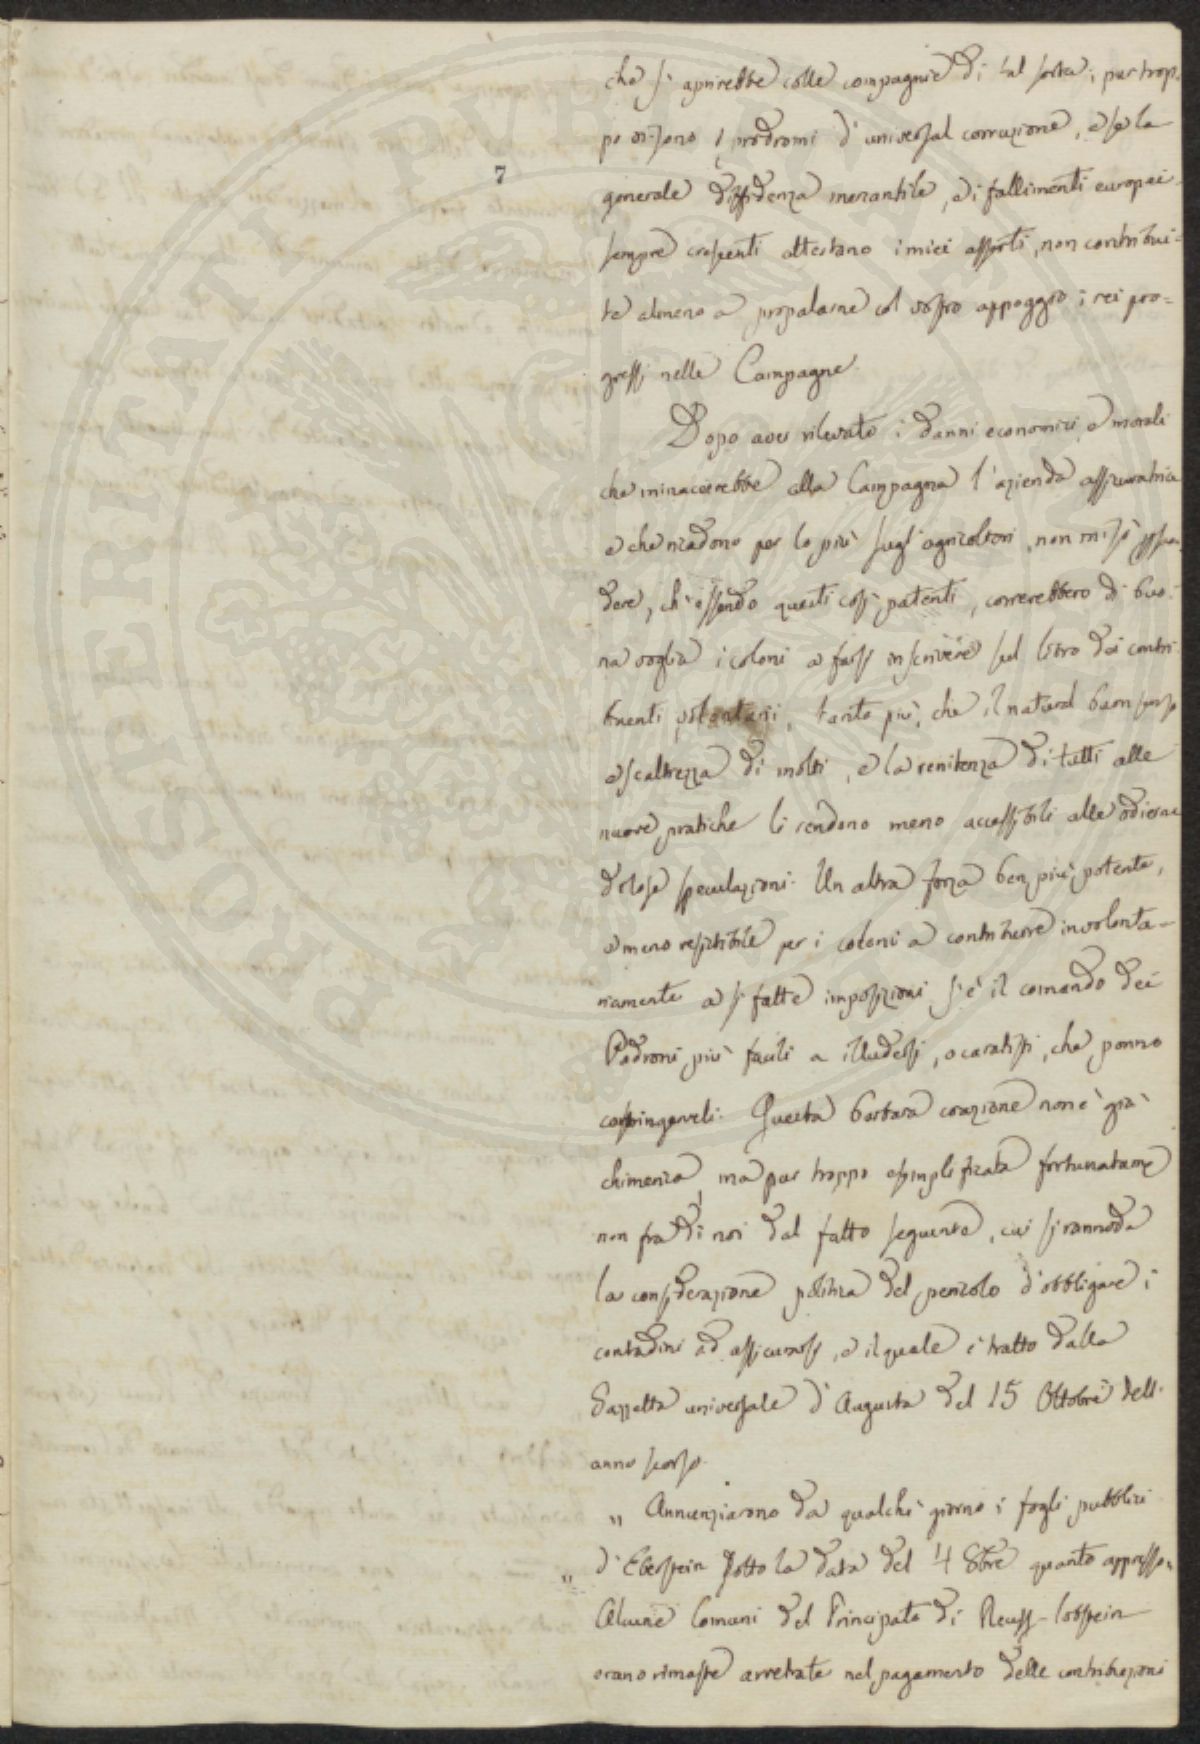 7
che si aprirebbe colle compagnie di tal sorta; pur trop-
po vi sono i prodromi d'universal corruzione, e se la
generale diffidenza mercantile, e i fallimenti europei
sempre crescenti attestano i miei asserti, non contribui-
te almeno a propalarne col vostro appoggio i rei pro=
gressi nelle Campagne.
Dopo aver rilevato i danni economici, e morali
che minaccierebbe alla Campagna l'azienda assicuratrice
e che ricadono per lo più sugli agricoltori, non mi si
dere, ch'essendo questi così patenti, correrebbero di buo-
na voglia i coloni a farsi inscrivere sul libro dei contri-
buenti volontarii, tanto più, che il natural buon senso
e scaltrezza di molti, e la renitenza di tutti alle
nuove pratiche li rendono meno accessibili alle odierne
dolose speculazioni. Un altra forza ben più potente,
e meno resistibile per i coloni a contribuire involonta-
riamente a sì fatte imposizioni si è il comando dei
Padroni più facili a illudersi, o caratisti, che ponno
costringerveli. Questa barbara coazione non è già
chimerica, ma pur troppo esemplificata fortunatamte
non fra di noi dal fatto seguente, cui si rannoda
la considerazione politica del pericolo d'obbligare i
contadini ad assicurarsi, e il quale è tratto dalla
Gazzetta universale d'Augusta del 15 Ottobre dell'
anno scorso.
„ Annunziarono da qualche giorno i fogli pubblici
„ d'Eberstein sotto la data del 4 8bre quanto appresso.
Alcune Comuni del Principato di Reuss-Lobstein
erano rimaste arretrate nel pagamento delle contribuzioni
PROSPERITATI PVBLICAE